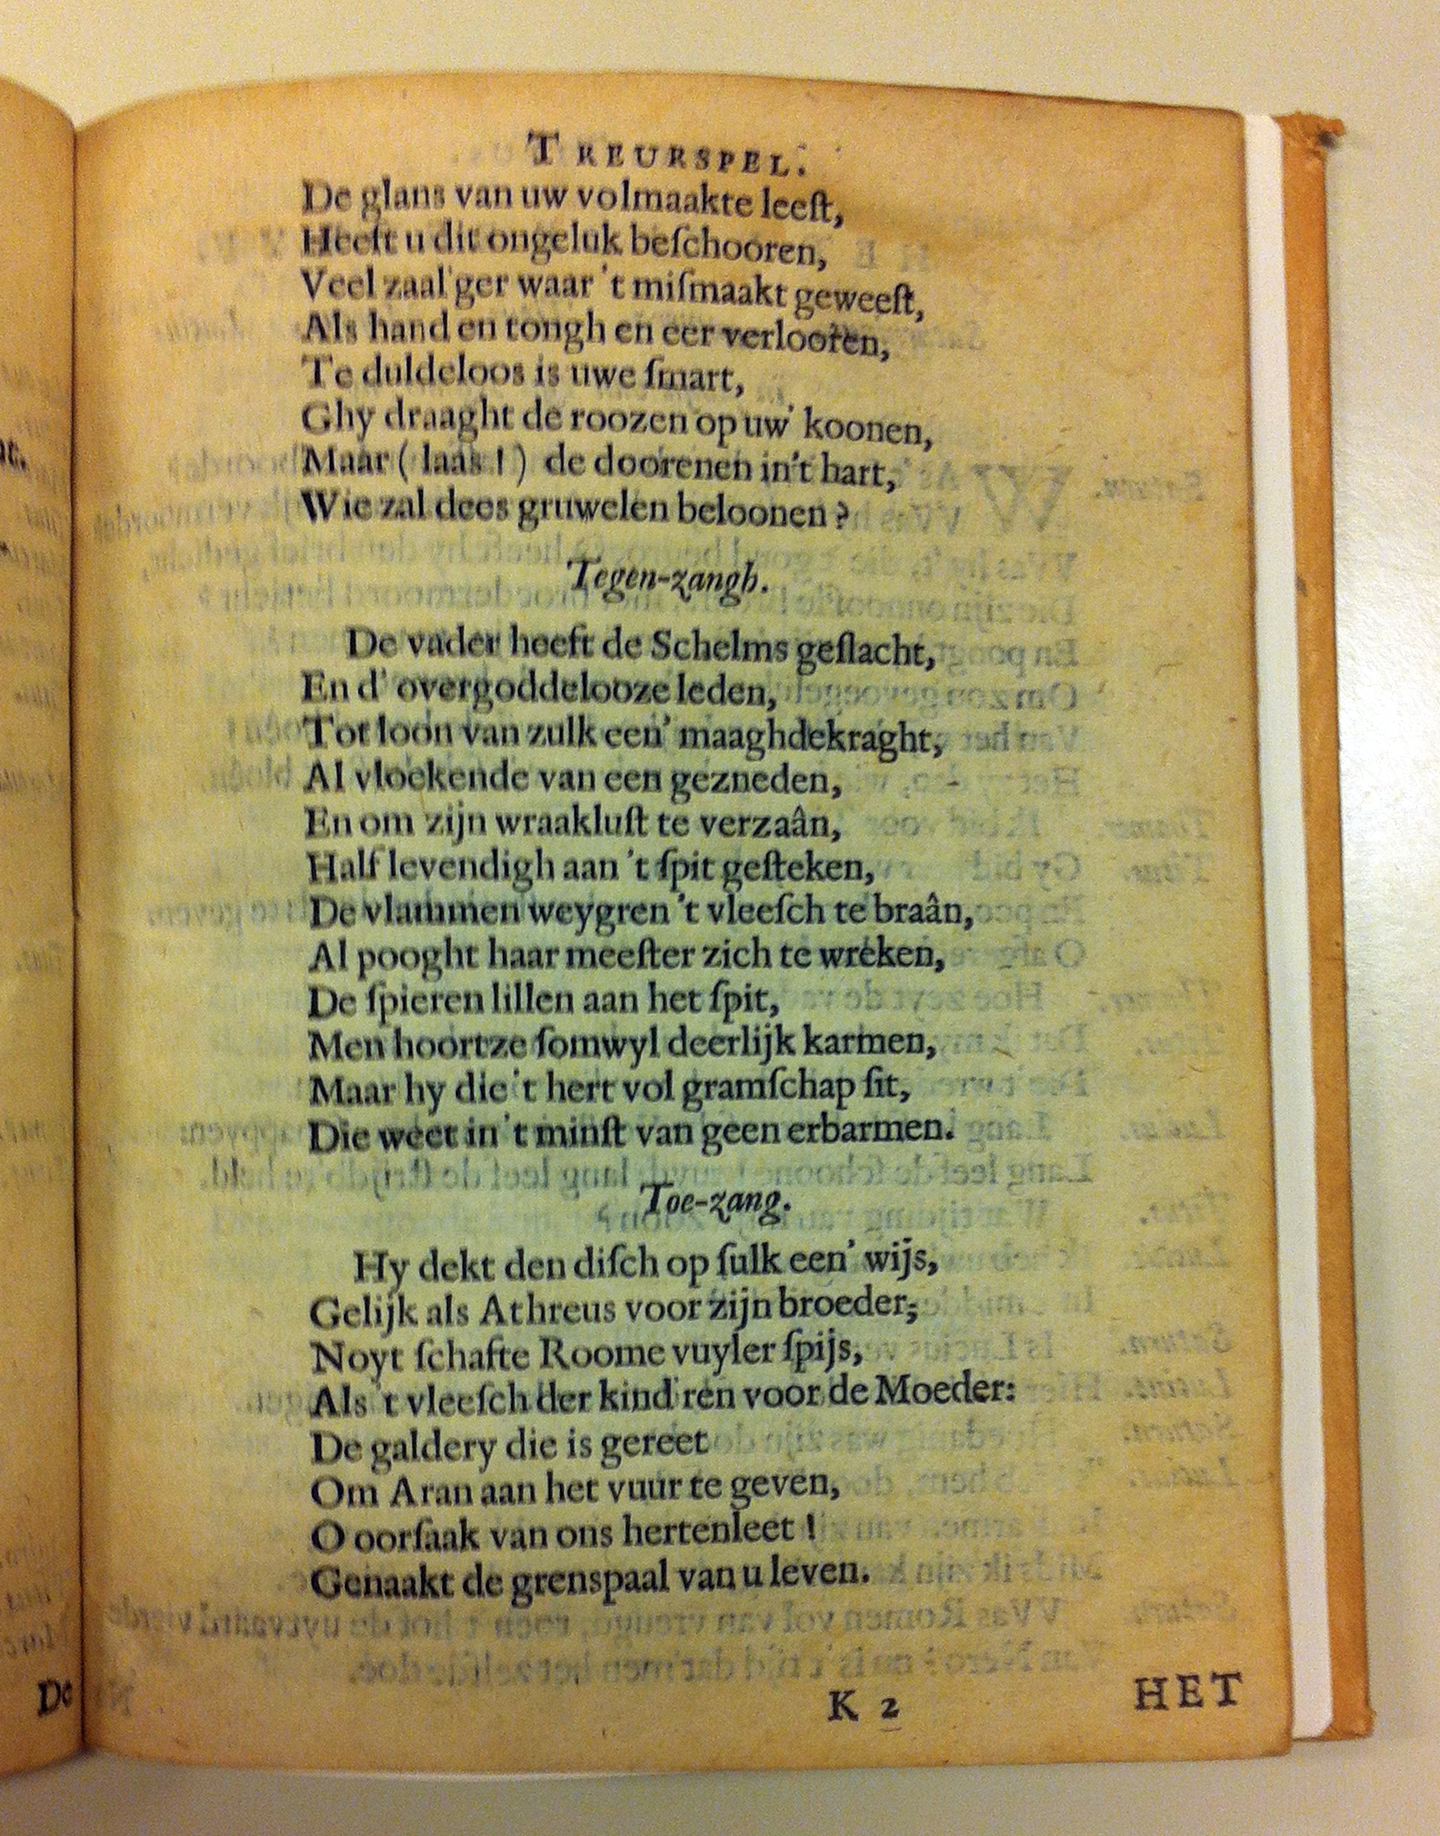 TREURSPEL.
De glans van uw volmaakte leeſt,
Heeft u dit ongeluk beſchooren,
Veel zaal'ger waar 't miſmaakt geweeſt,
Als hand en tongh en eer verlooren,
Te duldeloos is uwe ſmart,
Ghy draaght de roozen op uw' koonen,
Maar ( laas ! ) de doorenen in't hart,
Wie zal dees gruwelen beloonen ?
Tegen-zangh.
De vader heeft de Schelms geſlacht,
En d' overgoddelooze leden,
Tot loon van zulk een' maaghdekraght,
Al vloekende van een gezneden,
En om zijn wraakluſt te verzaân,
Half levendigh aan 't ſpit geſteken,
De vlammen weygren 't vleeſch te braân,
Al pooght haar meeſter zich te wreken,
De ſpieren lillen aan het ſpit,
Men hoort ze ſomwyl deerlijk karmen,
Maar hy die 't hert vol gramſchap ſit,
Die weet in 't minſt van geen erbarmen.
Toe-zang.
Hy dekt den diſch op ſulk een' wijs,
Gelijk als Athreus voor zijn broeder,
Noyt ſchafte Roome vuyler ſpijs,
Als 't vleeſch der kind'ren voor de Moeder:
De galdery die is gereet
Om Aran aan het vuur te geven,
O oorſaak van ons hertenleet !
Genaakt de grenspaal van u leven.
K 2
HET
De